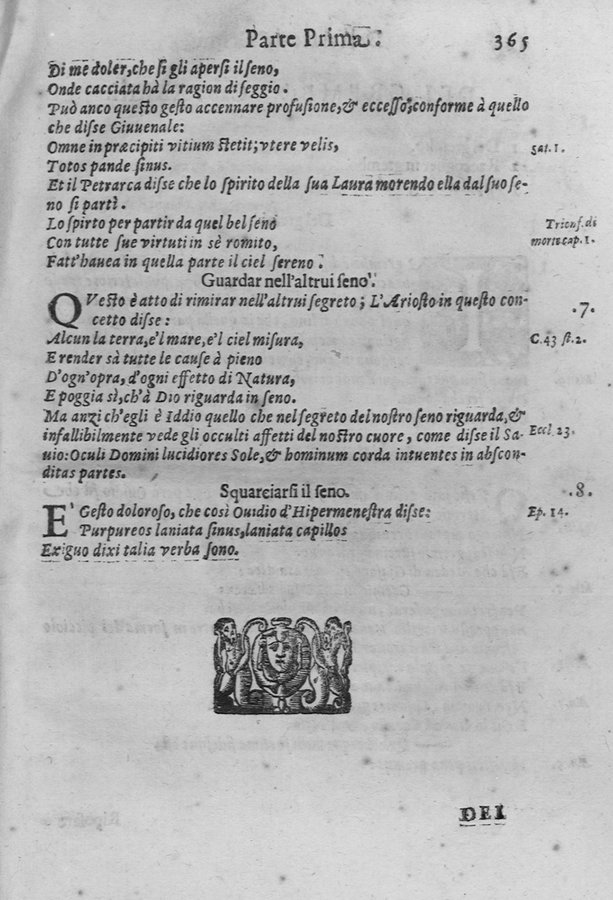 Parte Prima. 365
Di me doler, che ſi gli aperſi il ſeno,
Onde cacciata hà la ragion di ſeggio.
Può anco queſto geſto accennare profuſione, & ecceſſo, conforme à quello
che diſſe Giuuenale:
Omne in præcipiti vitium ſtetit; vtere velis, ſat. 1.
Totos pande ſinus.
Et il Petrarca diſſe che lo ſpirito della ſua Laura morendo ella dal ſuo ſe-
no ſi partì.
Lo ſpirto per partir da quel bel ſeno Trionf. di
Con tutte ſue virtuti in sè romito, morte cap. 1.
Fatt'hauea in quella parte il ciel ſereno.
Guardar nell'altrui ſeno.
QVeſto è atto di rimirar nell'altrui ſegreto; L'Arioſto in queſto con- .7.
cetto diſſe:
Alcun la terra, e'l mare, e'l ciel miſura, C. 43 ſt. 2.
E render sà tutte le cauſe à pieno
D'ogn'opra, d'ogni effetto di Natura,
E poggia sì, ch'à Dio riguarda in ſeno.
Ma anzi ch'egli è Iddio quello che nel ſegreto del noſtro ſeno riguarda, &
infallibilmente vede gli occulti affetti del noſtro cuore, come diſſe il Sa- Eccl. 23.
uio: Oculi Domini lucidiores Sole, & hominum corda intuentes in abſcon-
ditas partes.
Squarciarſi il ſeno. .8.
E' Geſto doloroſo, che così Ouidio d'Hipermeneſtra diſſe: Ep. 14.
Purpureos laniata ſinus, laniata capillos
Exiguo dixi talia verba ſono.
DEI